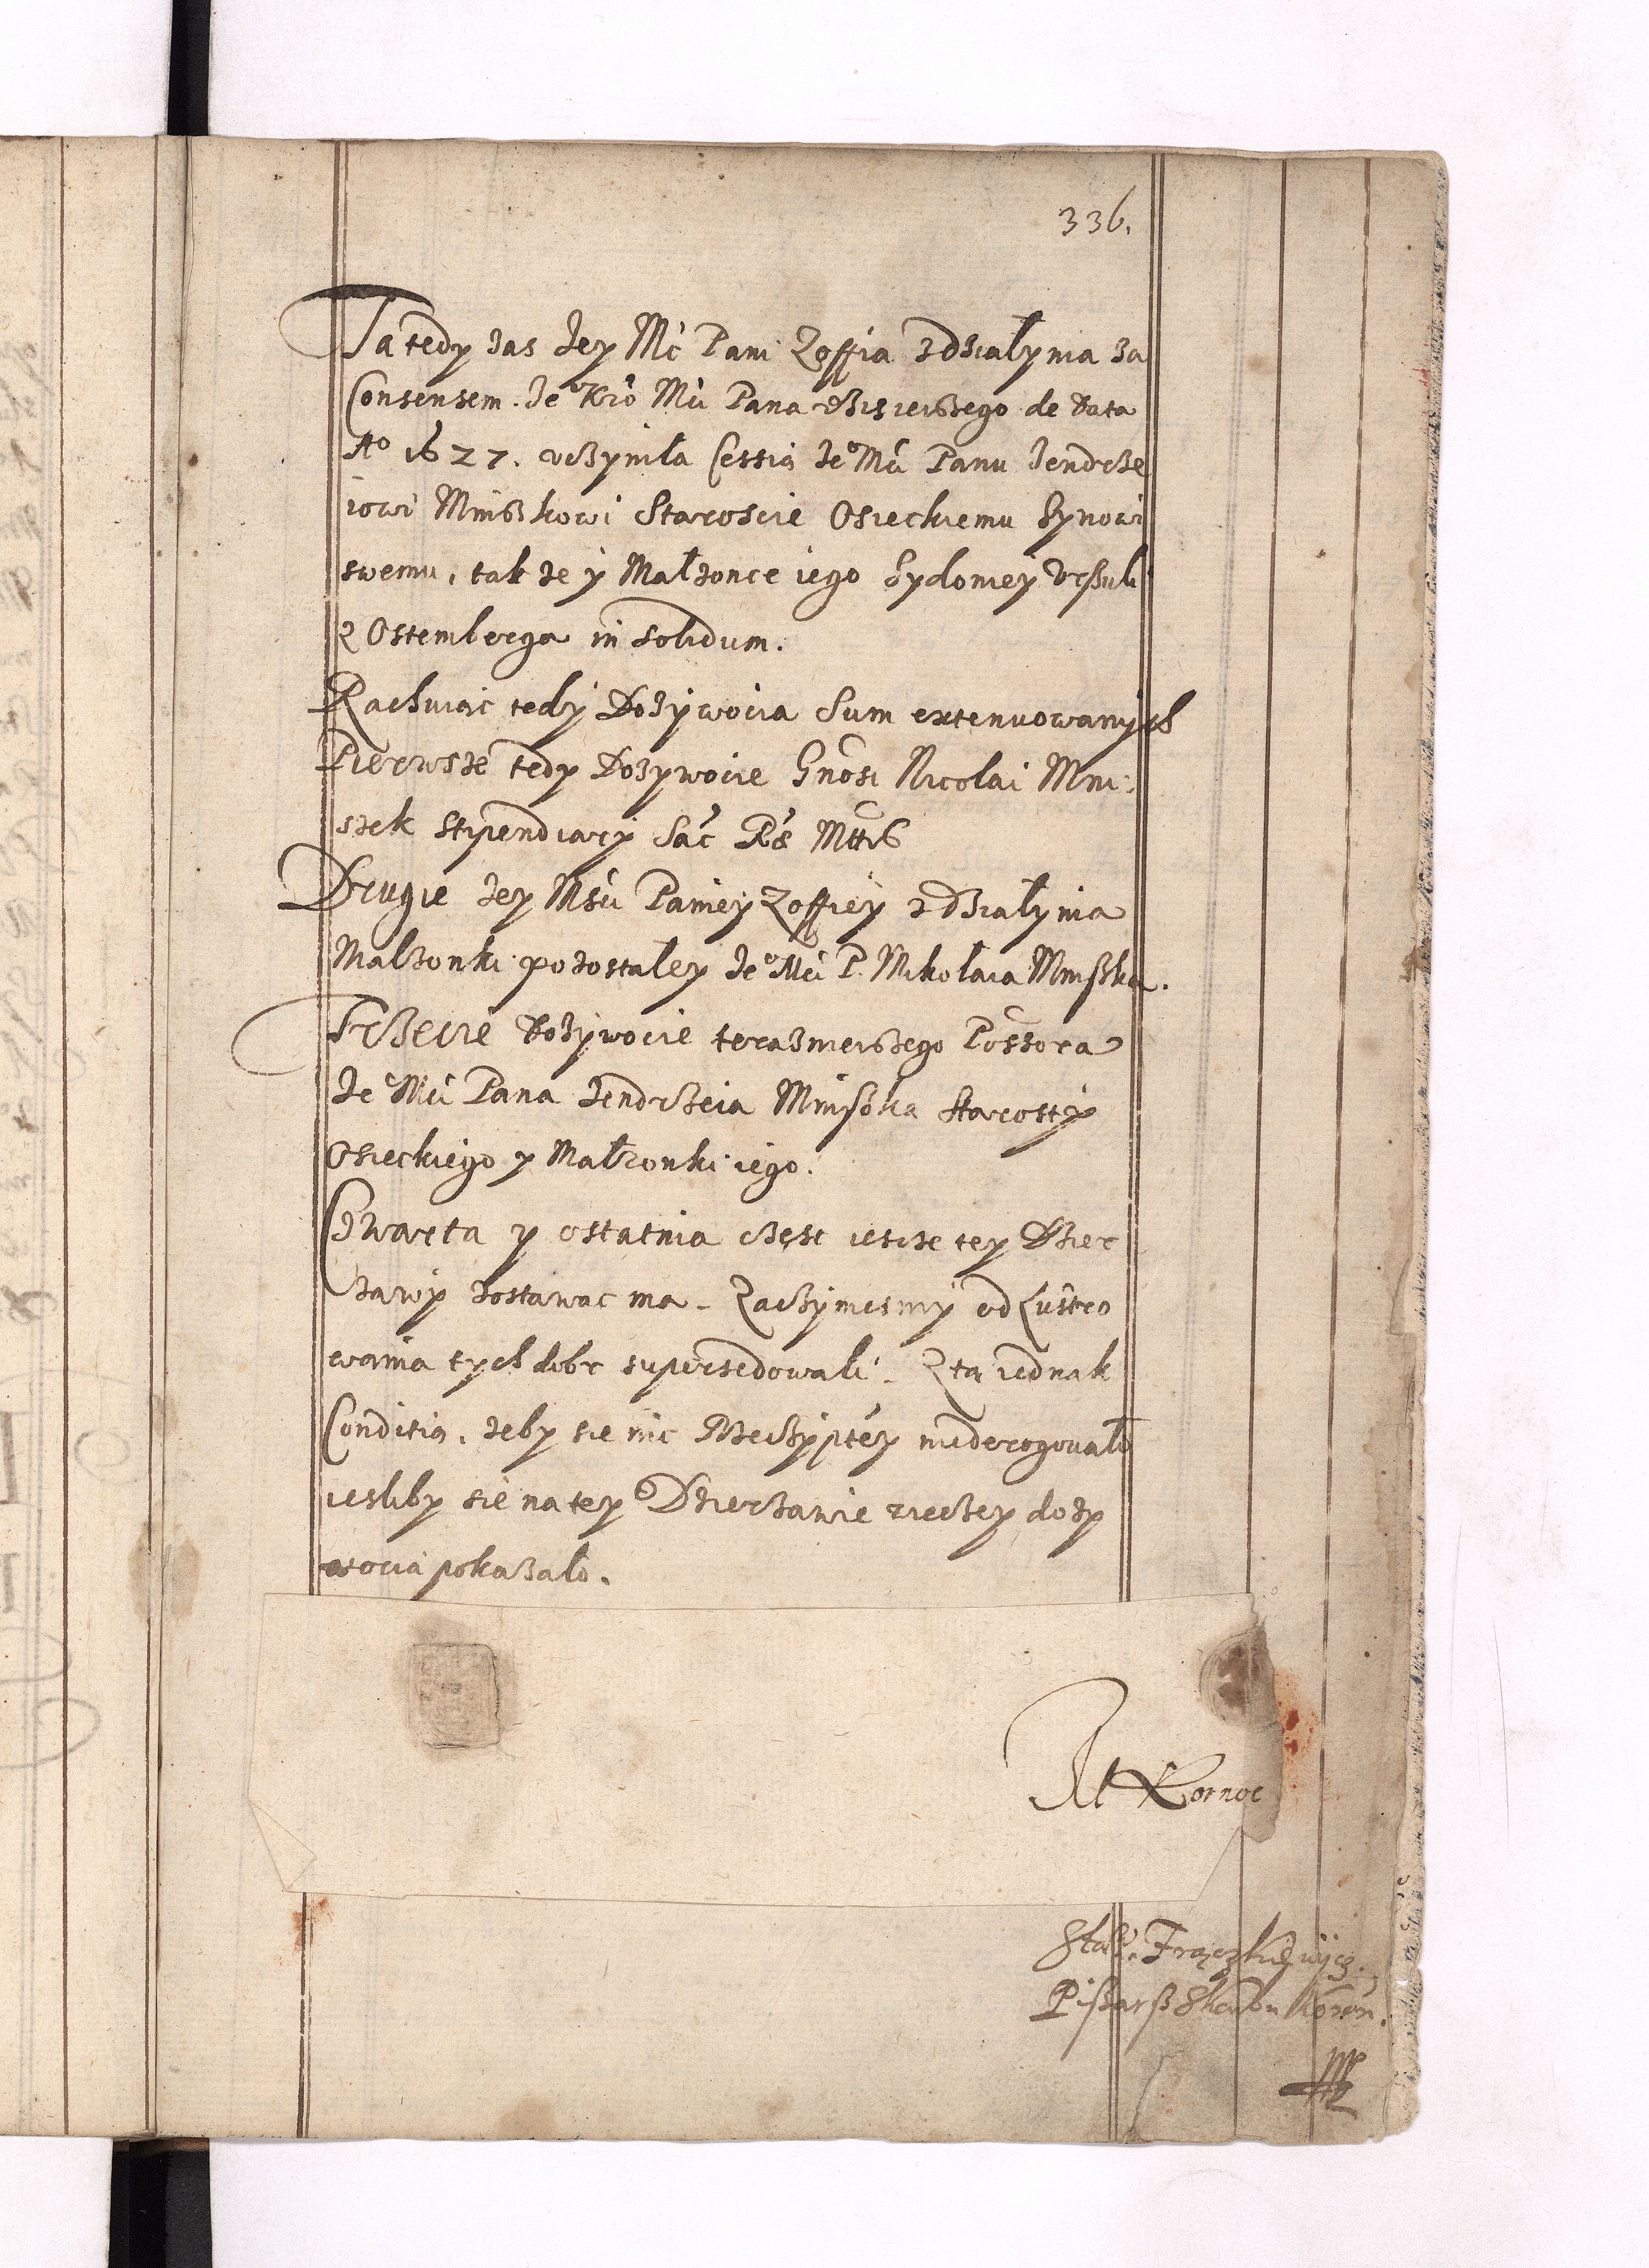 336.
Ta tedy zas Jey Mć Pani Zoffia z Dzialynia za
Consensem Je° Kró Mći Pana dzisieiszego de data
A° 1627. uczyniła Cessią Je° Mći Panu Jendrze
iowi Mniszkowi Staroscie Osieckiemu Synowi
swemu, tak ze y Małzonce iego Sydoniey Urszuli
z Ostemberga in solidum.
Rachuiąc tedy Dozywocia Sum extenuowanych
Pierwsze tedy Dozywocie Gnosi Nicolai Mni:
szek stipendiary Sac Rs Mttis
Drugie Jey Msći Paniey Zoffiey z Dzialynia
Malzonki pozostałey Je° Mći P. Mikolaia Mniszka.
Trzecie dozywocie teraznieiszego Possora
Je° Mći Pana Jendrzeia Mniszka Starosty
Osieckiego y Małzonki iego.
Czwarta y ostatnia częsc iescze tey Dzier
zawy zostawac ma. Zaczymesmy od Lustro
wania tych dobr supersedowali. Z tą iednak
Conditią, zeby sie nic Rzeczyptéy niederogovało
iesliby sie na tey Dzierzawie wieczey dozy
wocia pokazało.
Stas. Frączkiewicz.
Piszarz Skarbu Koron.